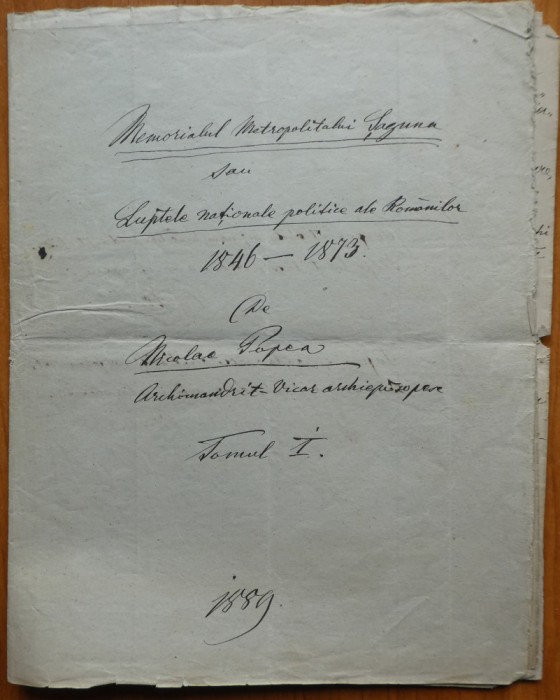 Memorialul Metropolitului Șaguna
sau
Luptele naționale politice ale Românilor
1846 — 1873.
De
Nicolae Popea
Archimandrit-Vicar arhiepiscopesc
Tomul I.
1889.